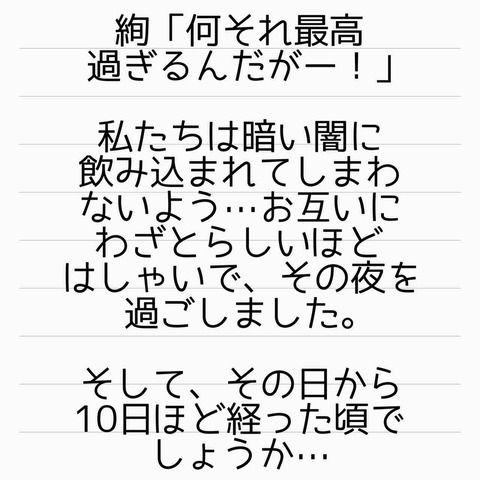 絢「何それ最高
過ぎるんだがー！」
私たちは暗い闇に
飲み込まれてしまわ
ないよう…お互いに
わざとらしいほど
はしゃいで、その夜を
過ごしました。
そして、その日から
10日ほど経った頃で
しょうか…